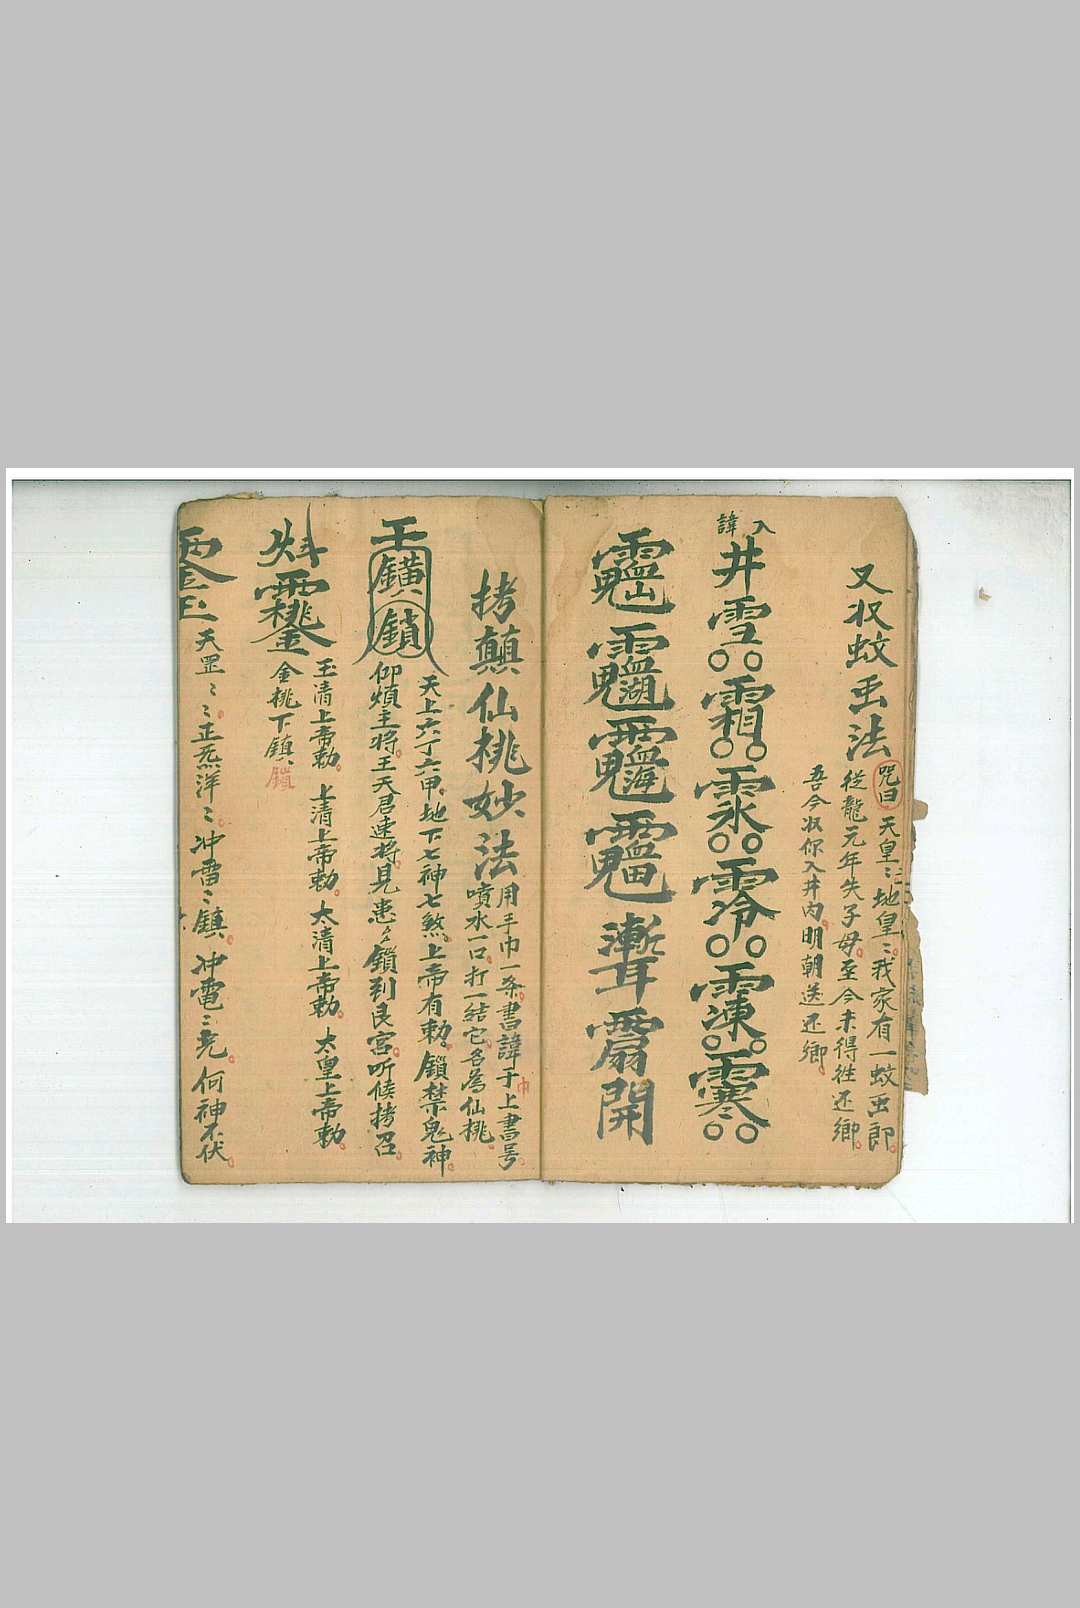 又收蚊虫法
咒曰
天皇〻地皇〻我家有一蚊虫郎
從龍元年失子母至今未得往还鄉
吾今收你入井内明朝送还鄉
入諱
井雪霜氷零凍寒
漸耳 開
拷顛仙桃妙法
用手巾一条書諱于上書号
巾
噴水一口打一結它名為仙桃
天上六丁六甲地下七神七煞上帝有勅鎖禁鬼神
王鐄鎖
仰煩主將王天君速將見患〻鎖到艮宮听候拷召
玉清上帝勅 上清上帝勅 太清上帝勅 太皇上帝勅
金桃下鎮
鎖
天罡〻〻正炁洋〻冲雷〻鎮冲電〻 何神不伏